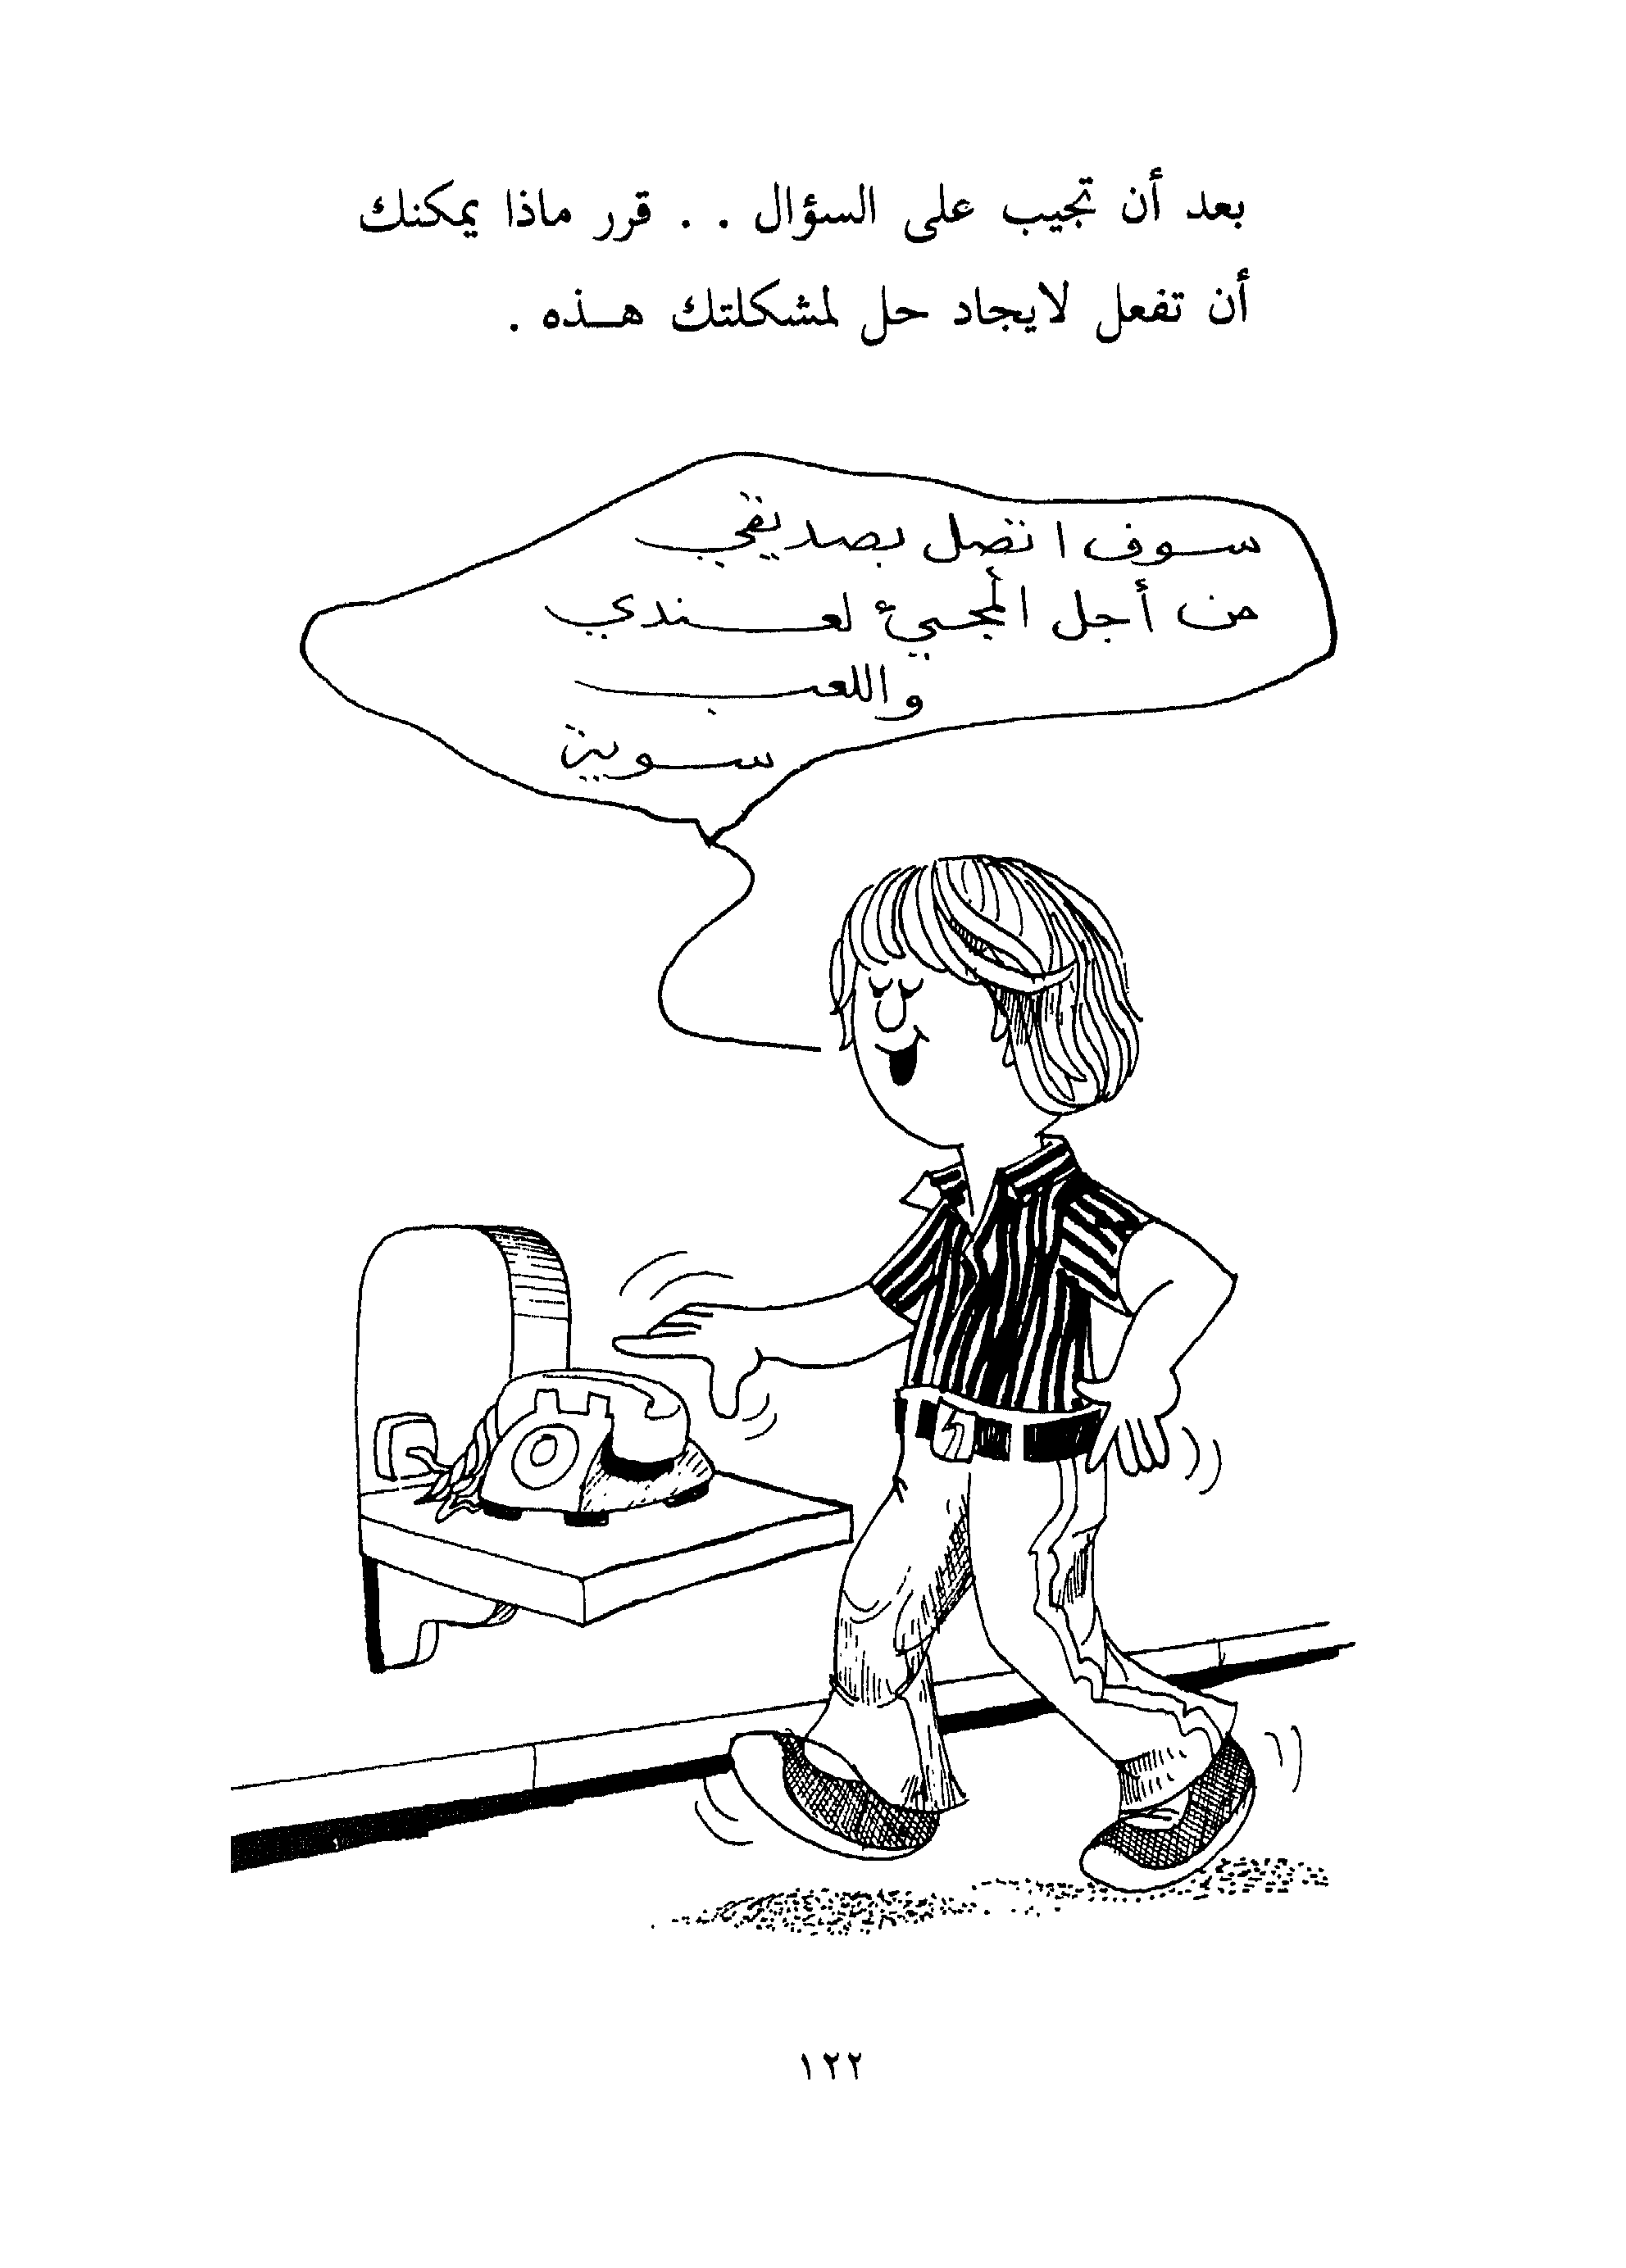 بعد أن تجيب على السؤال . . قرر ماذا يمكنك
أن تفعل لايجاد حل لمشكلتك هـــذه .
سوف اتصل بصديقي
من أجل المجيئ لعندي
واللعب
سوية
١٢٢